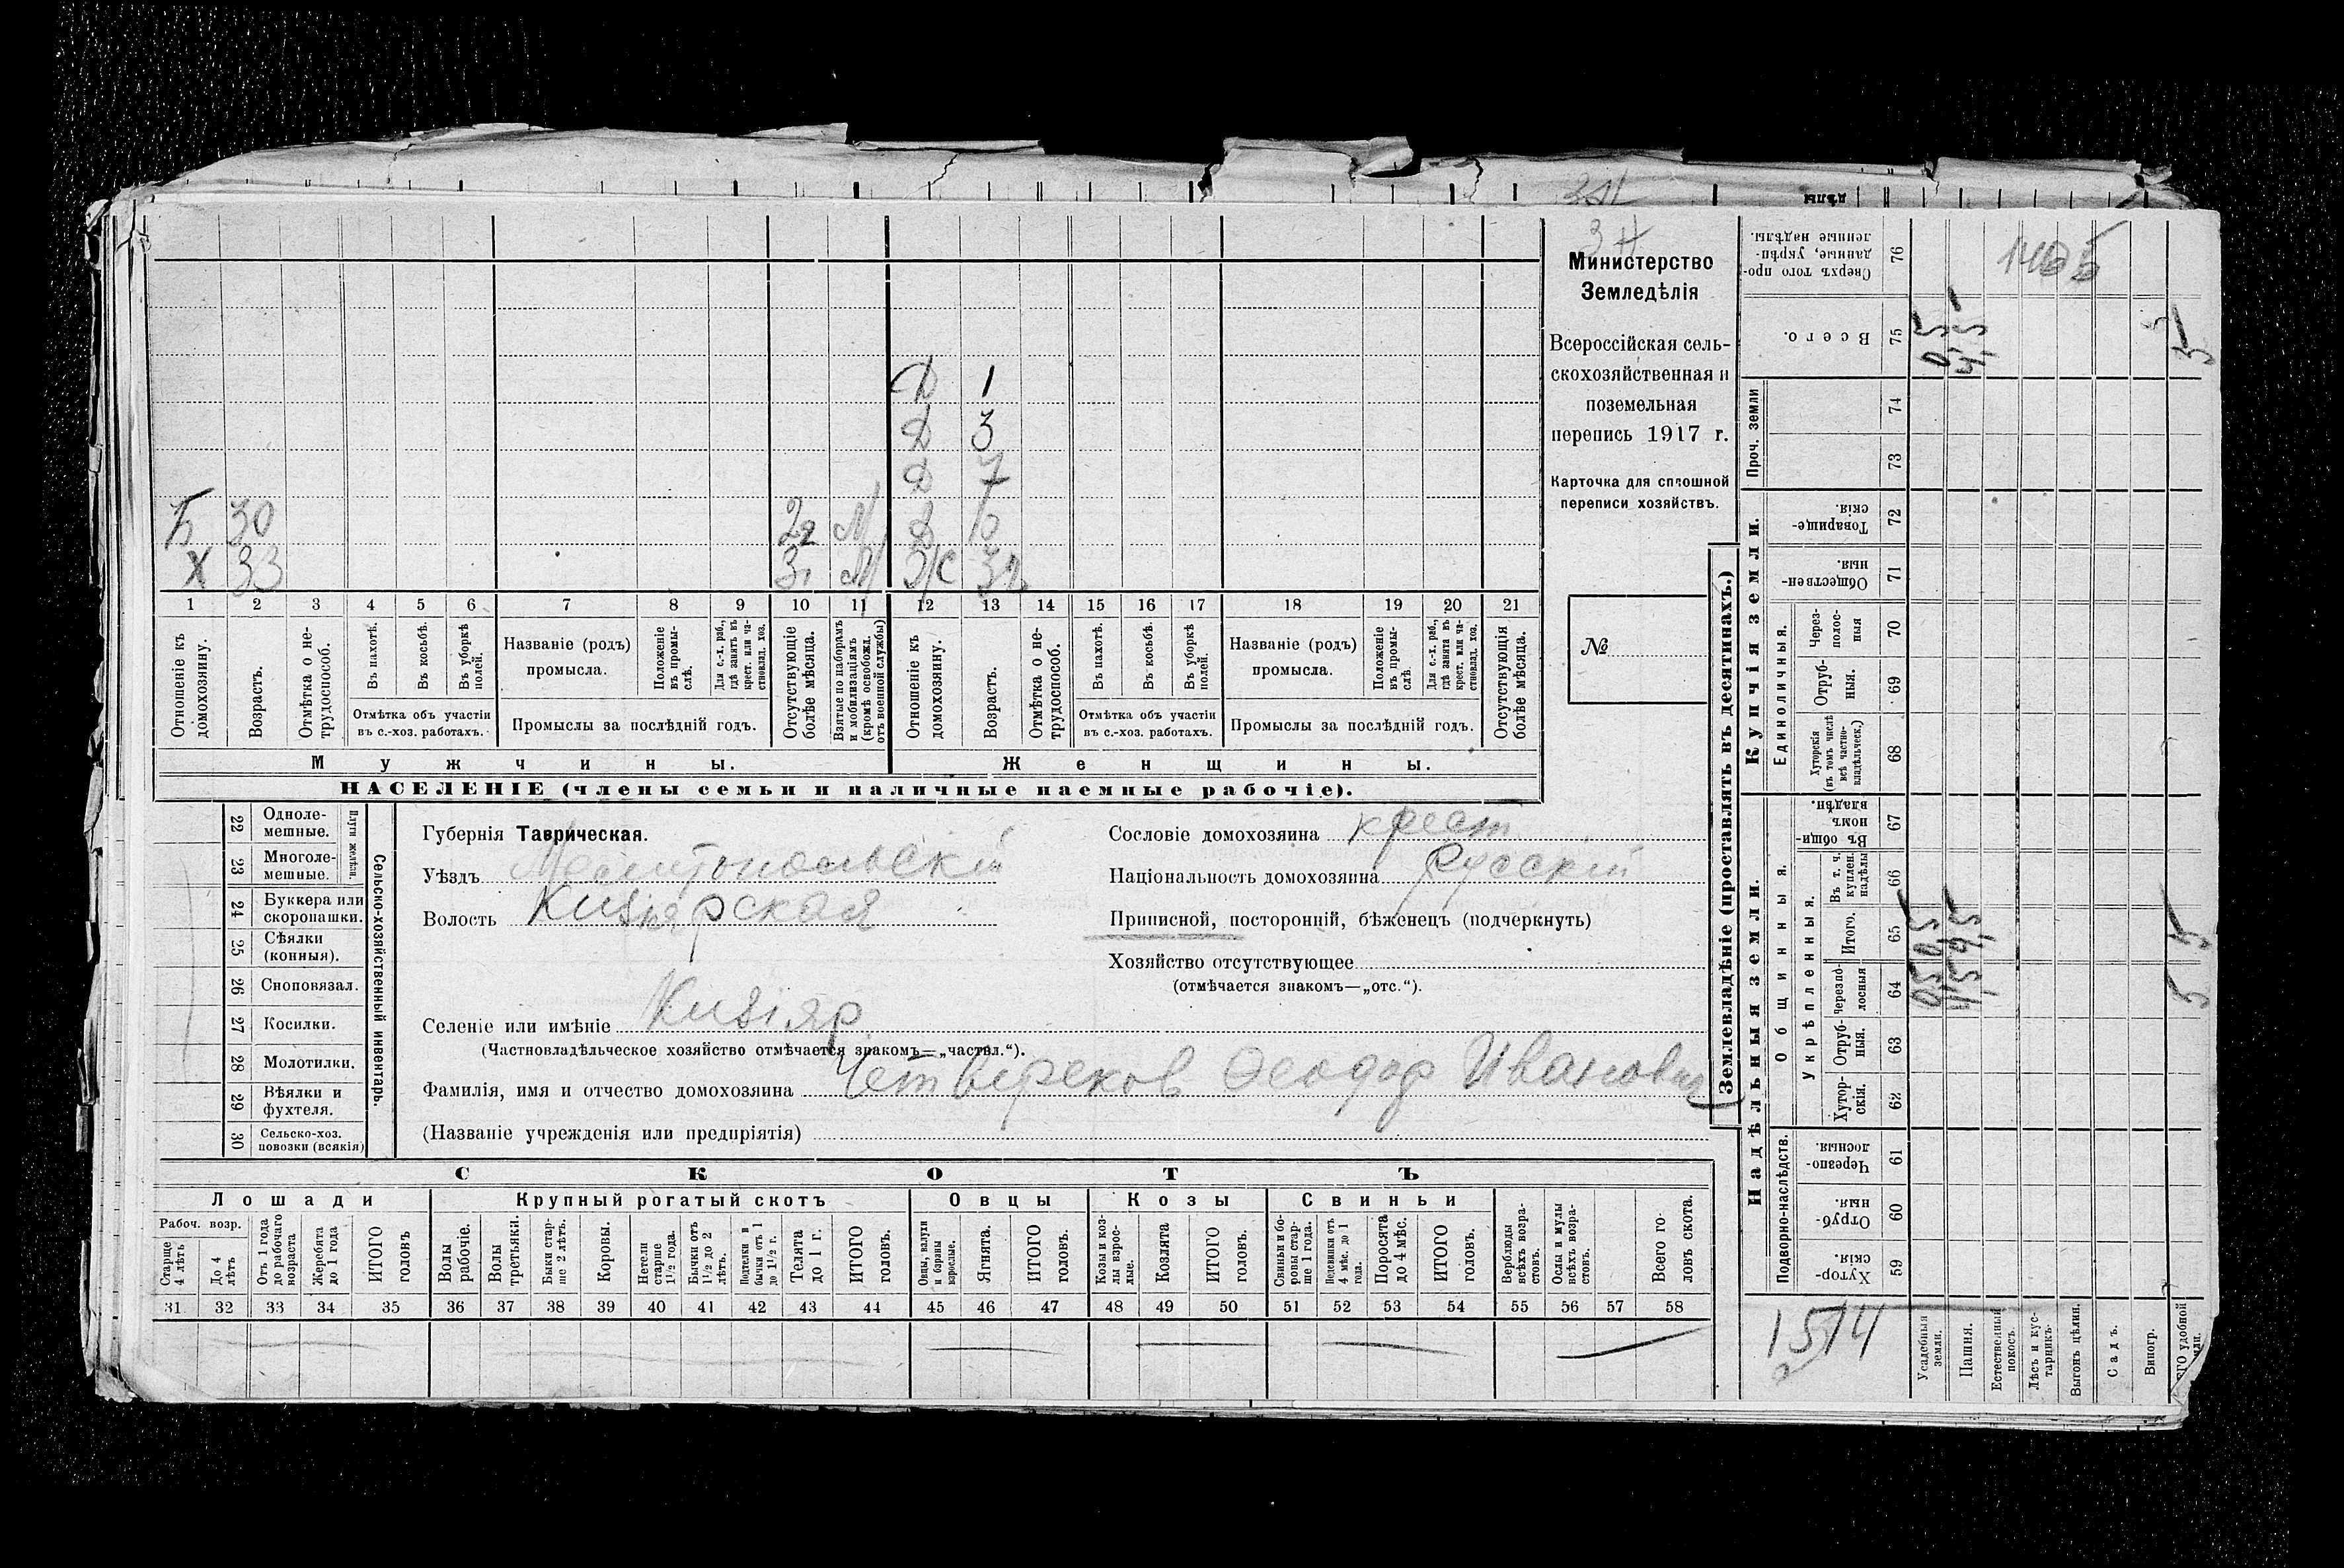 3 Н
Министерство
Земледѣлія
Всероссійская сель-
скохозяйственная и
поземельная
перепись 1917 г.
Карточка для сплошной
переписи хозяйствъ.
№
Д 1
Д 3
Д 7
Б 30 М Д 10
Х 33 М Ж 32
1 2 3 4 5 6 7 8 9 10 11 12 13 14 15 16 17 18 19 20 21
Отношеніе къ домохозяину.
Возрастъ.
Отмѣтка о не-трудоспособ.
Въ пахотѣ.
Въ косьбѣ.
Въ уборкѣ полей.
Отмѣтка объ участіи
въ с.-хоз. работахъ.
Названіе (родъ)
промысла.
Положеніе въ промы-слѣ.
Для с.-х. раб., гдѣ занятъ въ крест. или ча-стновлад. хоз.
Промыслы за послѣдній годъ.
Отсутствующіе болѣе мѣсяца.
Взятые по наборамъ и мобилизаціямъ (кромѣ освобожд. отъ военной службы)
Отношеніе къ домохозяину.
Возрастъ.
Отмѣтка о не-трудоспособ.
Въ пахотѣ.
Въ косьбѣ.
Въ уборкѣ полей.
Отмѣтка объ участіи
въ с.-хоз. работахъ.
Названіе (родъ)
промысла.
Положеніе въ промы-слѣ
Для с.-х. раб., гдѣ занята въ крест. или ча-стновлад. хоз.
Промыслы за послѣдній годъ.
Отсутствующія болѣе мѣсяца.
Мужчины.
Женщины.
НАСЕЛЕНІЕ (члены семьи и наличные наемные рабочіе).
22 Одноле-мешные.
23 Многоле-мешные.
Плуги желѣзн.
24 Буккера или скоропашки.
25 Сѣялки (конныя).
26 Сноповязал.
27 Косилки.
28 Молотилки.
29 Вѣялки и фухтеля.
30 Сельско-хоз. повозки (всякія)
Сельско-хозяйственный инвентарь.
Губернія Таврическая.
Уѣздъ Мелитопольскій
Волость Кизіярская
Селеніе или имѣніе Кизіяр
(Частновладѣльческое хозяйство отмѣчается знакомъ—„частвл.“).
Фамилія, имя и отчество домохозяина Четвериков Феодор Иванович
(Названіе учрежденія или предпріятія)
Сословіе домохозяина крест
Національность домохозяина Русскій
Приписной, посторонній, бѣженецъ (подчеркнуть)
Хозяйство отсутствующее
(отмѣчается знакомъ—„отс.“).
СКОТЪ
Лошади
Крупный рогатый скотъ
Овцы
Козы
Свиньи
Рабоч. возр.
Старше 4 лѣтъ
До 4 лѣтъ
Отъ 1 года до рабочаго возраста
Жеребята до 1 года
ИТОГО головъ
Волы рабочіе.
Волы третьяки.
Быки стар-ше 2 лѣтъ.
Коровы.
Нетели старше 1½ года.
Бычки отъ 1½ до 2 лѣтъ.
Подтелки и бычки отъ 1 до 1½ г.
Телята до 1 г.
ИТОГО головъ.
Овцы, валухи и бараны взрослые.
Ягнята.
ИТОГО головъ.
Козы и коз-лы взрос-лые.
Козлята
ИТОГО головъ.
Свиньи и бо-ровы стар-ше 1 года.
Подсвинки отъ 4 мѣс. до 1 года.
Поросята до 4 мѣс.
ИТОГО головъ.
Верблюды всѣхъ возра-стовъ.
Ослы и мулы всѣхъ возра-стовъ.
Всего го-ловъ скота.
31 32 33 34 35 36 37 38 39 40 41 42 43 44 45 46 47 48 49 50 51 52 53 54 55 56 57 58
Землевладѣніе (проставлять въ десятинахъ.)
Сверхъ того про-данные, укрѣп-ленные надѣлы. 76
Всего. 75
Проч. земли 74
73
Купчія земли.
Товарище-скія. 72
Обществен-ныя 71
Единоличныя.
Через-полос-ныя 70
Отруб-ныя. 69
Хуторскія (въ томъ числѣ всѣ частно-владѣльческ.) 68
Надѣльныя земли.
Общинныя.
Въ общи-номъ владѣн. 67
Укрѣпленныя.
Въ т. ч. куплен. надѣлы 66
Итого. 65
Черезпо-лосныя 64
Отруб-ныя. 63
Хутор-скія. 62
Подворно-наслѣдств.
Черезпо-лосныя. 61
Отруб-ныя. 60
Хутор-скія. 59
1514
Усадебныя земли.
Пашня.
Естественный покосъ.
Лѣсъ и кус-тарникъ.
Выгонъ цѣлин.
Садъ.
Виногр.